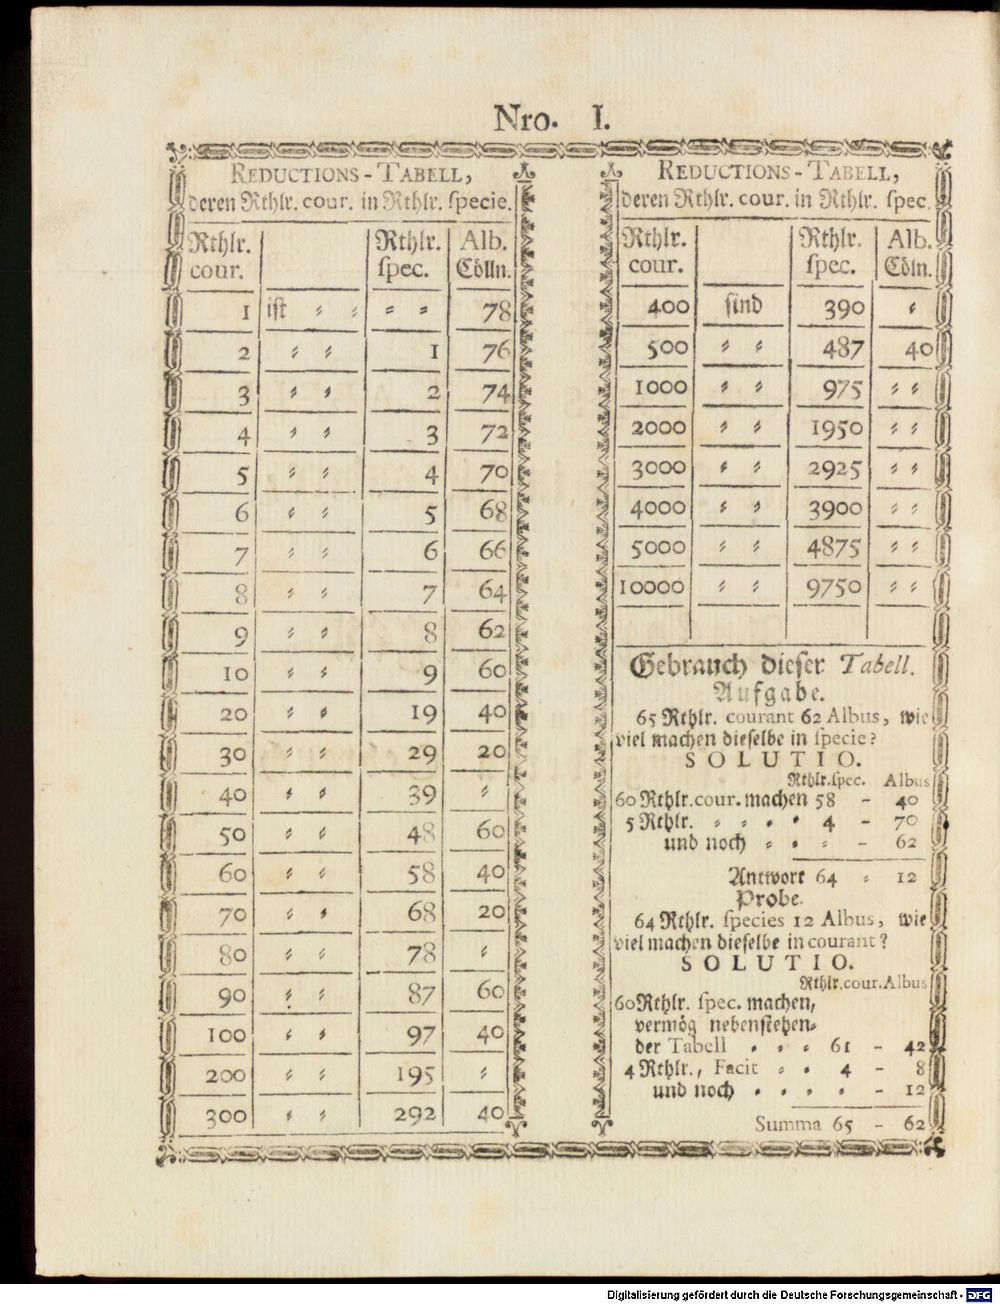 Nro. I.
REDUCTIONS-TABELL,
deren Rthlr. cour. in Rthlr. specie.
Rthlr. cour. | | Rthlr. spec. | Alb. Cölln.
1 | ist ⸗ ⸗ | ⸗ ⸗ | 78
2 | ⸗ ⸗ | 1 | 76
3 | ⸗ ⸗ | 2 | 74
4 | ⸗ ⸗ | 3 | 72
5 | ⸗ ⸗ | 4 | 70
6 | ⸗ ⸗ | 5 | 68
7 | ⸗ ⸗ | 6 | 66
8 | ⸗ ⸗ | 7 | 64
9 | ⸗ ⸗ | 8 | 62
10 | ⸗ ⸗ | 9 | 60
20 | ⸗ ⸗ | 19 | 40
30 | ⸗ ⸗ | 29 | 20
40 | ⸗ ⸗ | 39 | ⸗
50 | ⸗ ⸗ | 48 | 60
60 | ⸗ ⸗ | 58 | 40
70 | ⸗ ⸗ | 68 | 20
80 | ⸗ ⸗ | 78 | ⸗
90 | ⸗ ⸗ | 87 | 60
100 | ⸗ ⸗ | 97 | 40
200 | ⸗ ⸗ | 195 | ⸗
300 | ⸗ ⸗ | 292 | 40
REDUCTIONS-TABELL,
deren Rthlr. cour. in Rthlr. spec.
Rthlr. cour. | | Rthlr. spec. | Alb. Cöln.
400 | sind | 390 | ⸗
500 | ⸗ ⸗ | 487 | 40
1000 | ⸗ ⸗ | 975 | ⸗ ⸗
2000 | ⸗ ⸗ | 1950 | ⸗ ⸗
3000 | ⸗ ⸗ | 2925 | ⸗ ⸗
4000 | ⸗ ⸗ | 3900 | ⸗ ⸗
5000 | ⸗ ⸗ | 4875 | ⸗ ⸗
10000 | ⸗ ⸗ | 9750 | ⸗ ⸗
Gebrauch dieser Tabell.
Aufgabe.
65 Rthlr. courant 62 Albus, wie
viel machen dieselbe in specie?
SOLUTIO.
Rthlr. spec. Albus
60 Rthlr. cour. machen 58 - 40
5 Rthlr. ⸗ ⸗ ⸗ ⸗ 4 - 70
und noch ⸗ ⸗ ⸗ - 62
Antwort 64 ⸗ 12
Probe.
64 Rthlr. species 12 Albus, wie
viel machen dieselbe in courant?
SOLUTIO.
Rthlr. cour. Albus
60 Rthlr. spec. machen,
vermög nebenstehen⸗
der Tabell ⸗ ⸗ ⸗ 61 - 42
4 Rthlr., Facit ⸗ ⸗ 4 - 8
und noch ⸗ ⸗ ⸗ ⸗ - 12
Summa 65 - 62
Digitalisierung gefördert durch die Deutsche Forschungsgemeinschaft - DFG